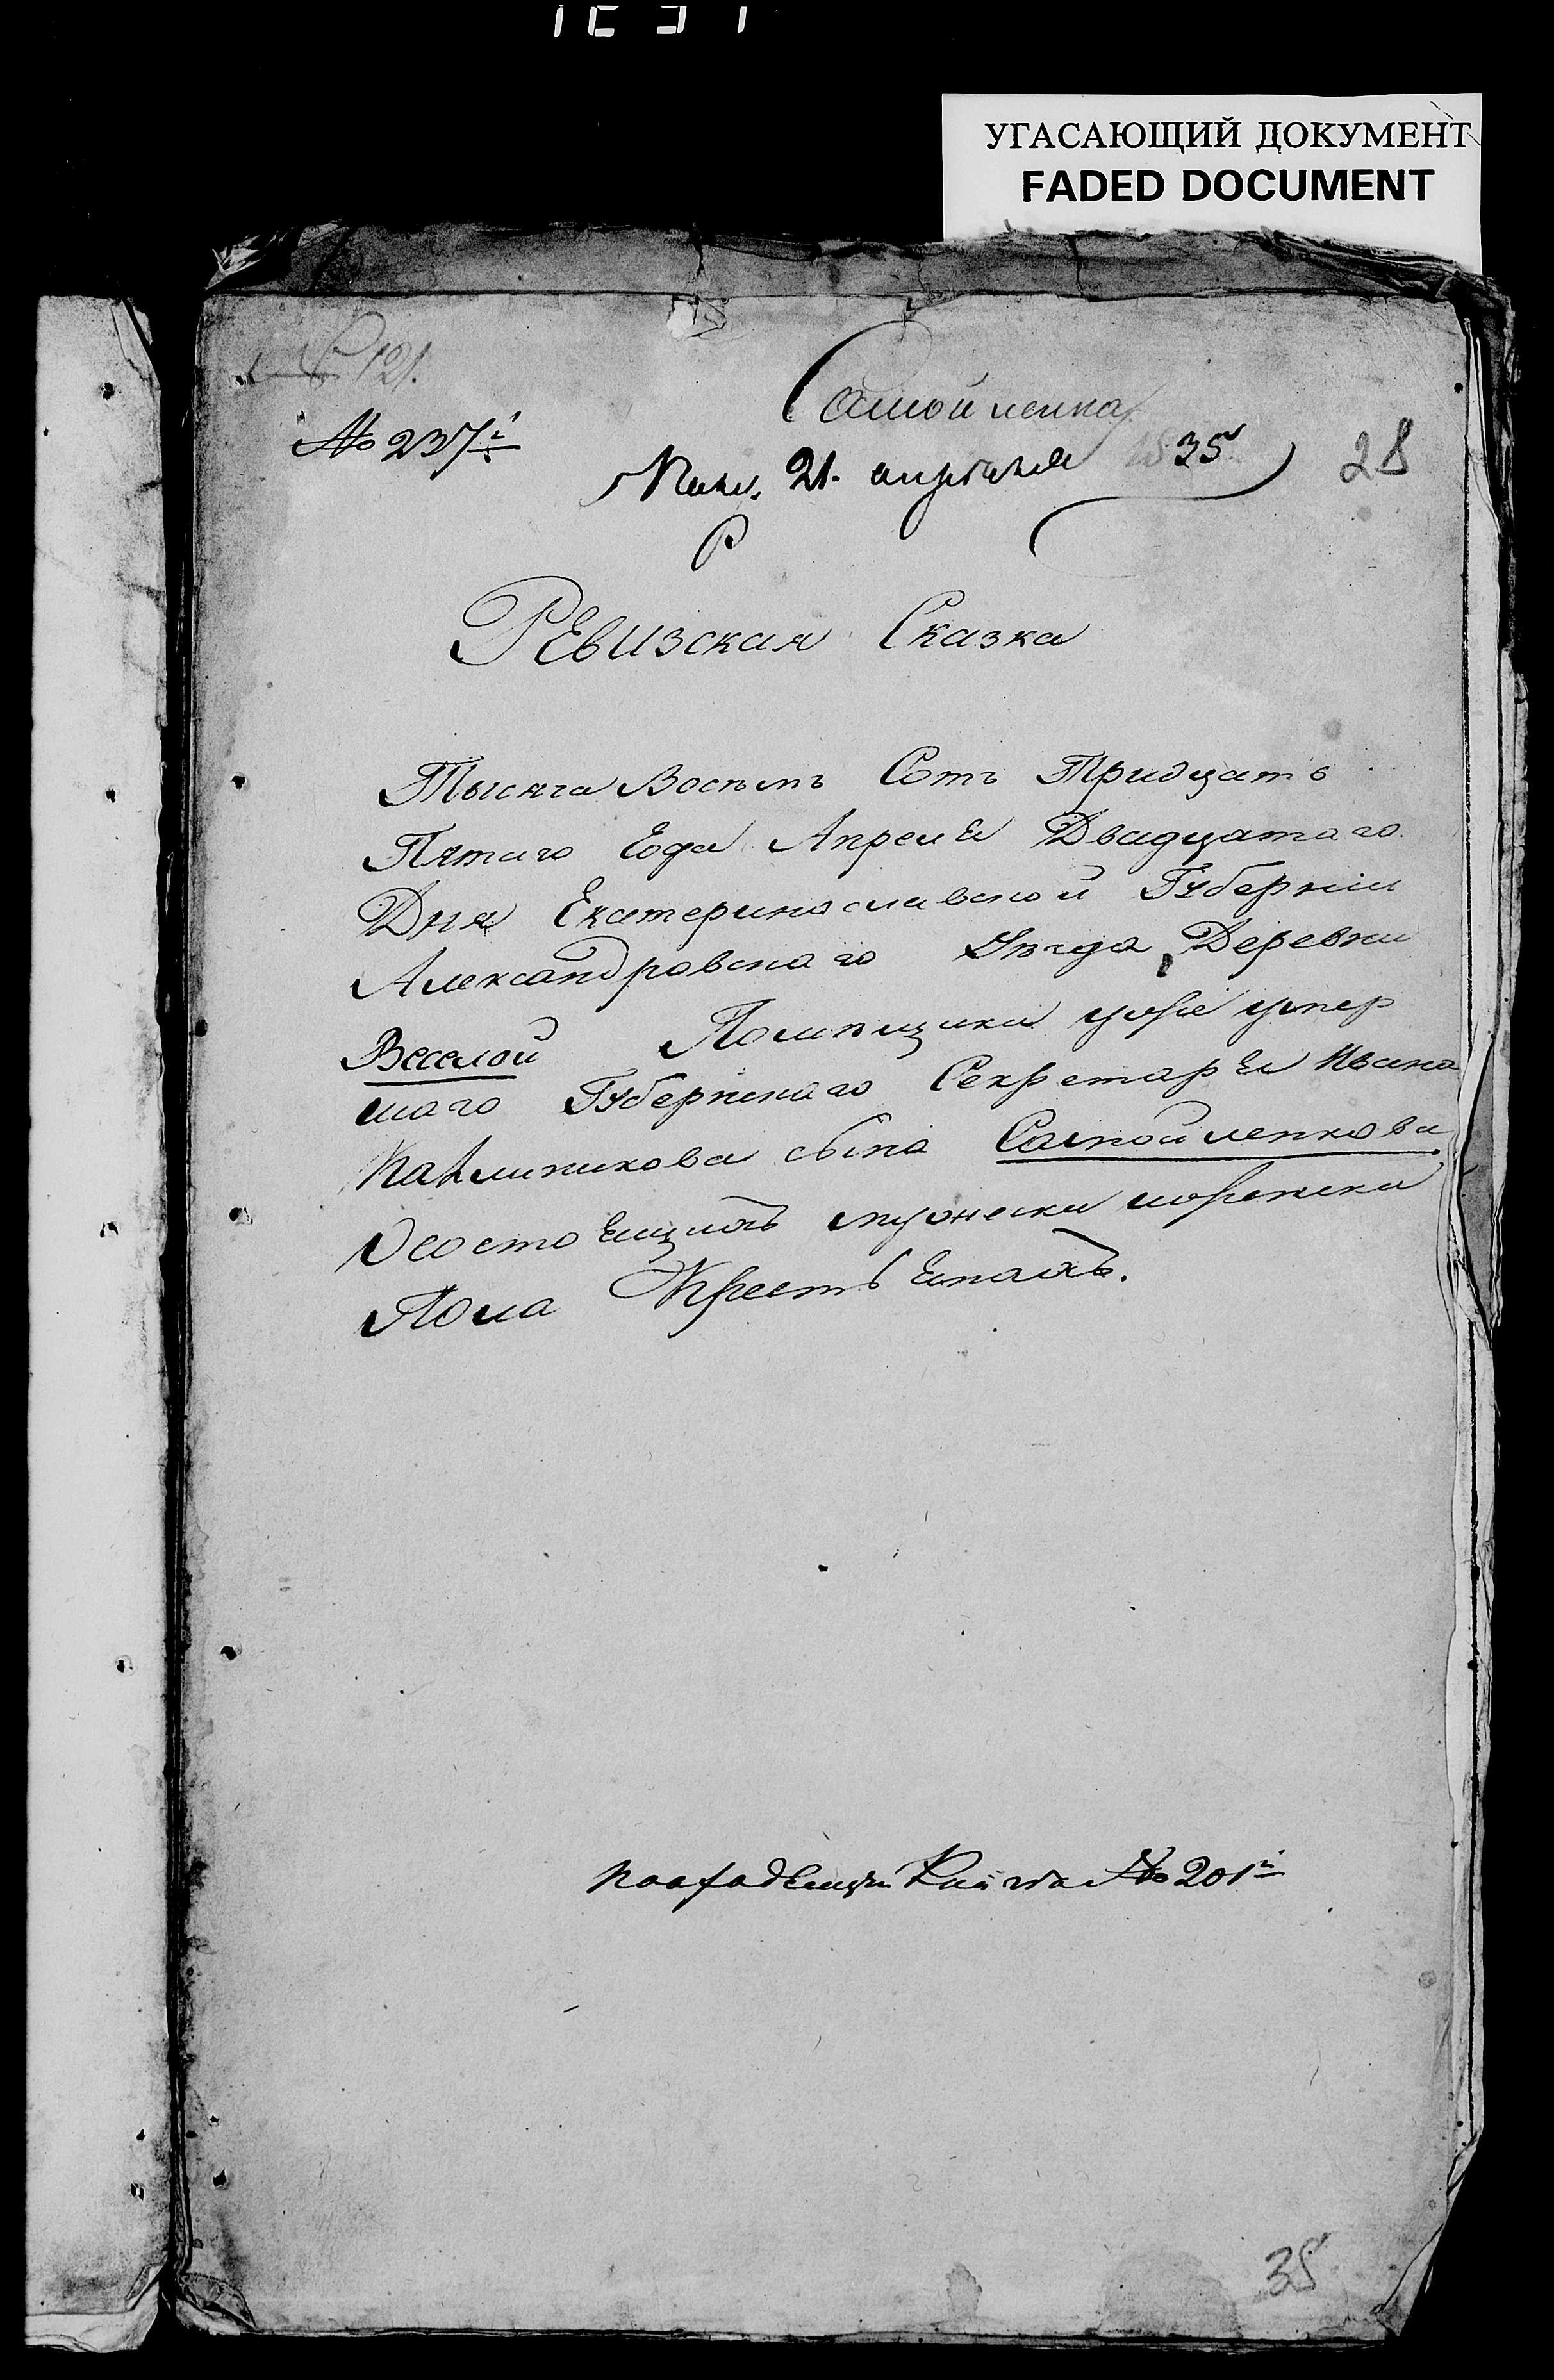 УГАСАЮЩИЙ ДОКУМЕНТ
FADED DOCUMENT
№ 121.
Самойленка
№ 237й
21. апреля 1835
28
Ревизская Сказка
Тысяча Восемь Сотъ Тридцать
Пятаго Года Апреля Двадцатаго
Дня Екатеринославской Губернiи
Александровскаго Уезда, Деревни
Веселой Помещика уже умер
шаго Губернскаго Секретаря Ивана
сына Самойленкова
О состоящихъ мужеска и женска
Пола Крестьянахъ.
№ 201й
35